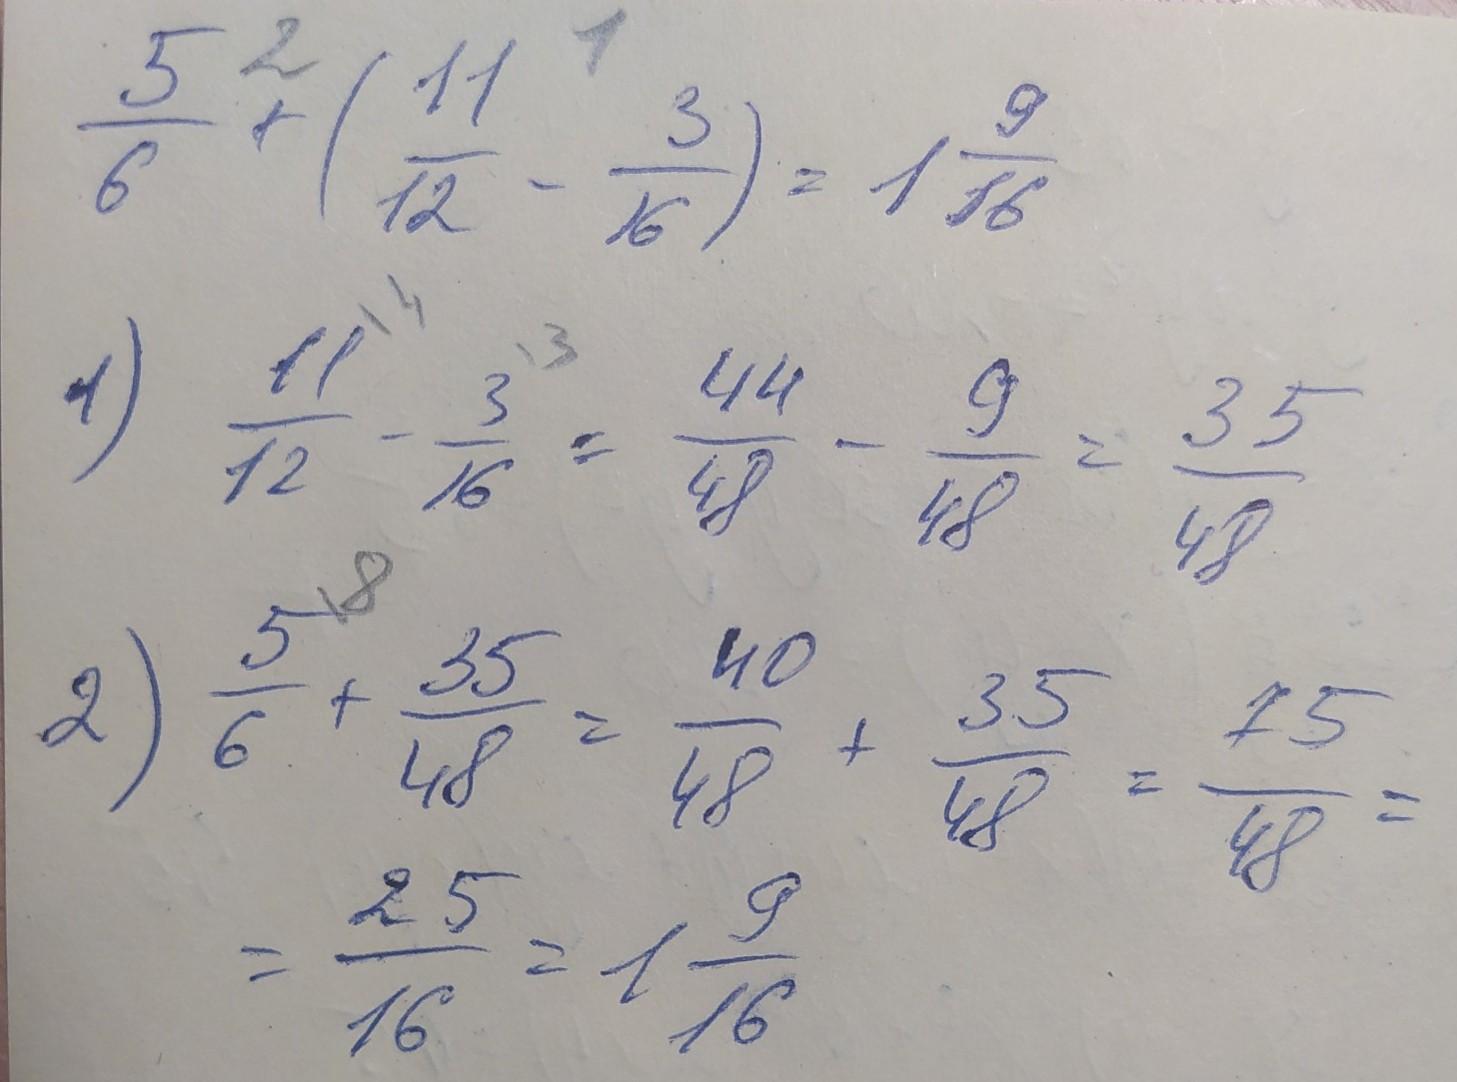 5/6 +² (11/12 -¹ 3/16) = 1 9/16
1) 11/12\4 - 3/16\3 = 44/48 - 9/48 = 35/48
2) 5/6\8 + 35/48 = 40/48 + 35/48 = 75/48 =
= 25/16 = 1 9/16